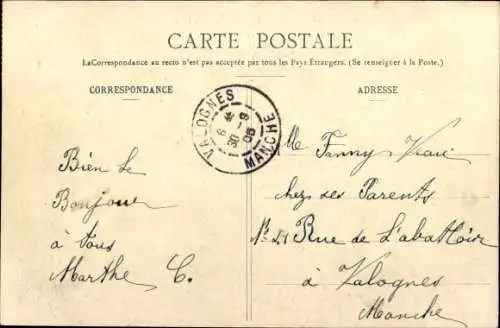 CARTE POSTALE
La Correspondance au recto n'est pas acceptée par tous les Pays Étrangers. (Se renseigner à la Poste.)
CORRESPONDANCE
ADRESSE
VALOGNES
6
30 -9
05
MANCHE
Bien le
Bonjour
à tous
Marthe C.
Mlle Fanny
chez ses Parents
Rue de L'abattoir
à Valognes
Manche